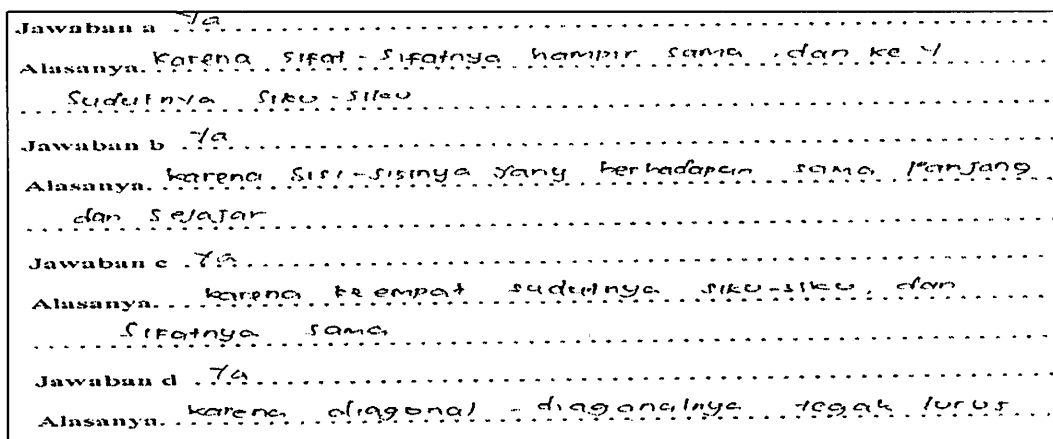 Jawaban a ya
Alasanya. karena sifat-sifatnya hampir sama, dan ke 4
sudutnya siku-siku
Jawaban b ya
Alasanya. karena sisi-sisinya yang berhadapan sama panjang
dan sejajar
Jawaban c ya
Alasanya. karena ke empat sudutnya siku-siku, dan
sifatnya sama
Jawaban d ya
Alasanya. karena diagonal-diagonalnya tegak lurus